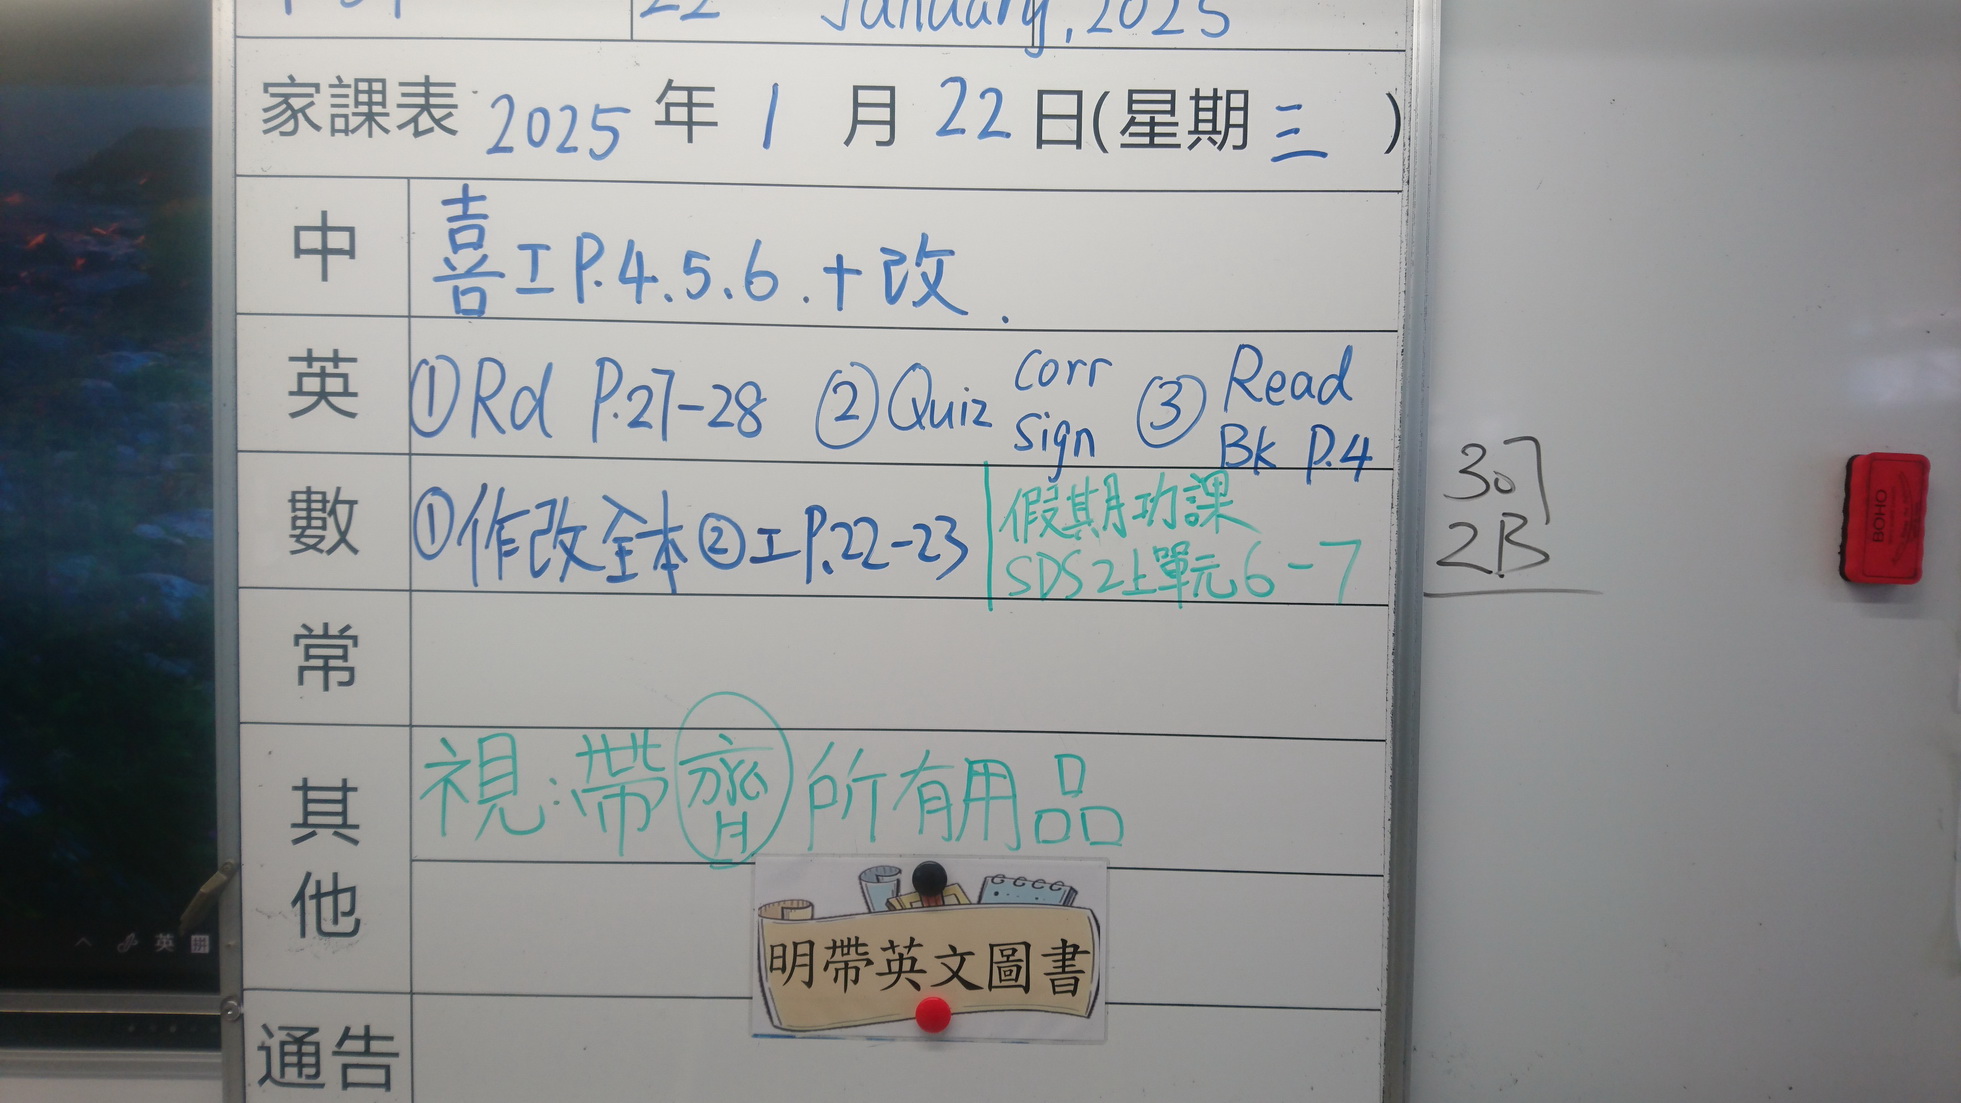 22 January, 2025
家課表 2025 年 1 月 22 日(星期 三 )
中 喜工 P.4.5.6.+改.
英 ①Rd P.27-28 ②Quiz corr sign ③Read Bk P.4
數 ①作改全本②工P.22-23 假期功課
SDS2上單元6-7
307
2B
常
其他 視:帶齊所有用品
明帶英文圖書
通告
英 拼
BOHO